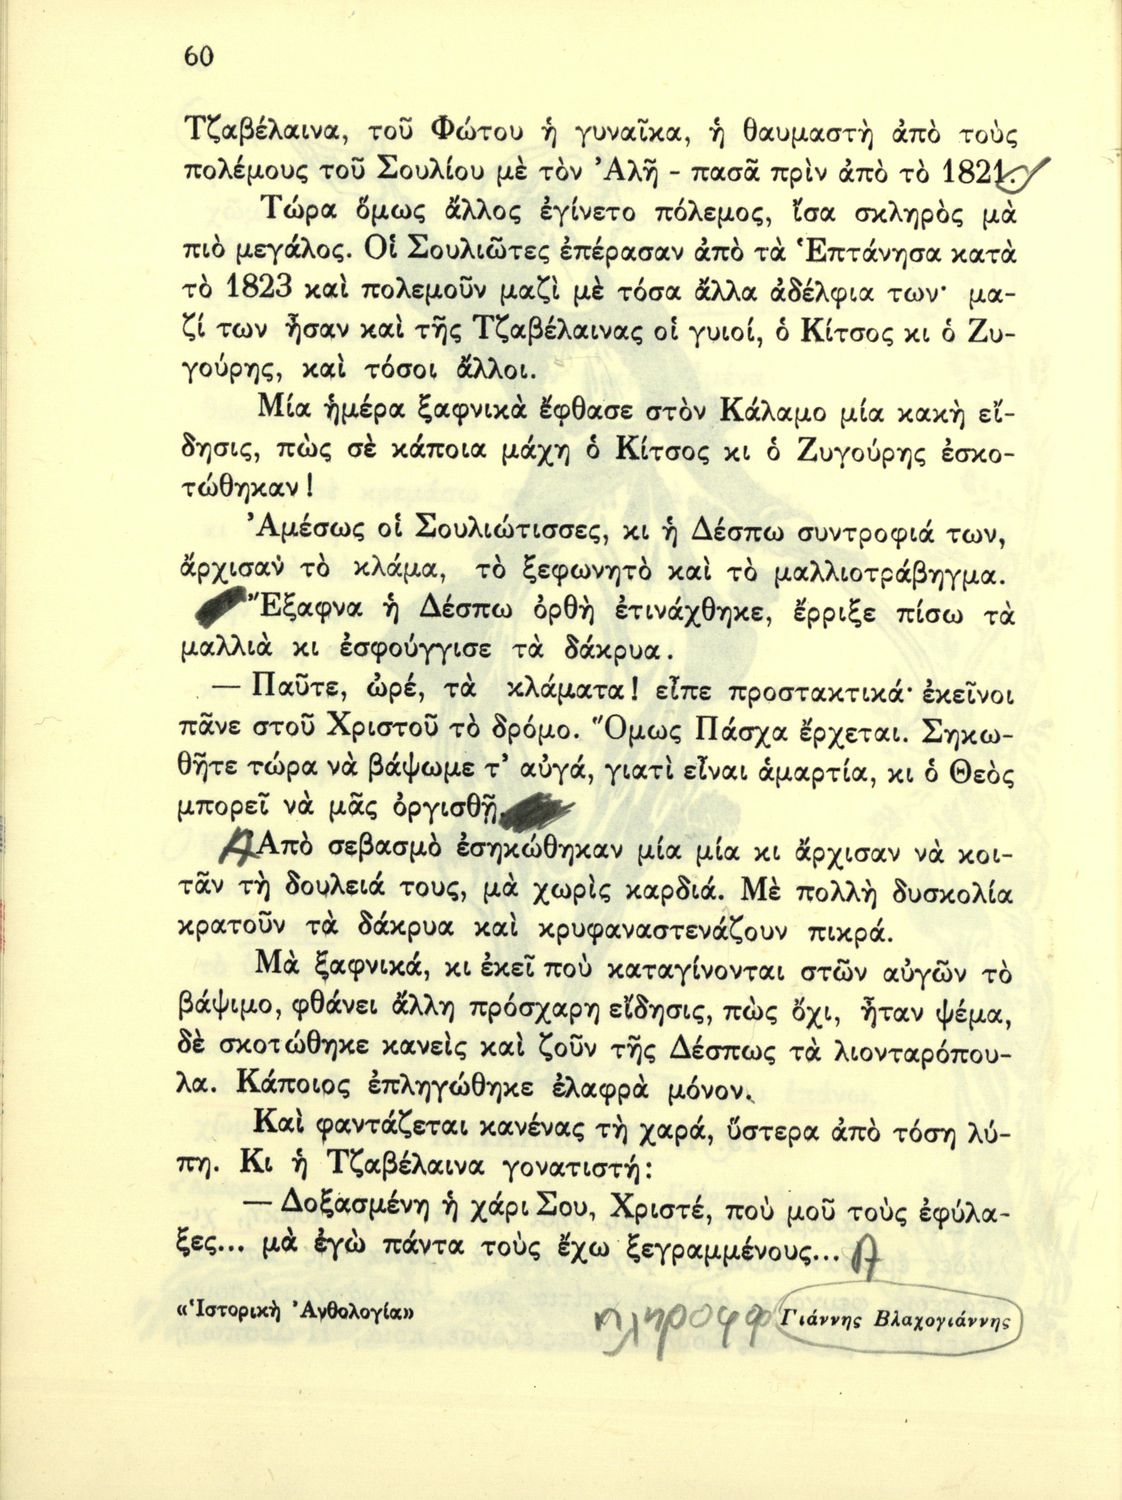 60
Τζαβέλαινα, τοῦ Φώτου ἡ γυναῖκα, ἡ θαυμαστὴ ἀπὸ τοὺς
πολέμους τοῦ Σουλίου μὲ τὸν Ἀλῆ - πασᾶ πρὶν ἀπὸ τὸ 1821.
Τώρα ὅμως ἄλλος ἐγίνετο πόλεμος, ἴσα σκληρὸς μὰ
πιὸ μεγάλος. Οἱ Σουλιῶτες ἐπέρασαν ἀπὸ τὰ Ἑπτάνησα κατὰ
τὸ 1823 καὶ πολεμοῦν μαζὶ μὲ τόσα ἄλλα ἀδέλφια των· μα-
ζί των ἦσαν καὶ τῆς Τζαβέλαινας οἱ γυιοί, ὁ Κίτσος κι ὁ Ζυ-
γούρης, καὶ τόσοι ἄλλοι.
Μία ἡμέρα ξαφνικὰ ἔφθασε στὸν Κάλαμο μία κακὴ εἴ-
δησις, πὼς σὲ κάποια μάχη ὁ Κίτσος κι ὁ Ζυγούρης ἐσκο-
τώθηκαν!
Ἀμέσως οἱ Σουλιώτισσες, κι ἡ Δέσπω συντροφιά των,
ἄρχισαν τὸ κλάμα, τὸ ξεφωνητὸ καὶ τὸ μαλλιοτράβηγμα.
Ἔξαφνα ἡ Δέσπω ὀρθὴ ἐτινάχθηκε, ἔρριξε πίσω τὰ
μαλλιὰ κι ἐσφούγγισε τὰ δάκρυα.
— Παῦτε, ὠρέ, τὰ κλάματα! εἶπε προστακτικά· ἐκεῖνοι
πᾶνε στοῦ Χριστοῦ τὸ δρόμο. Ὅμως Πάσχα ἔρχεται. Σηκω-
θῆτε τώρα νὰ βάψωμε τ' αὐγά, γιατὶ εἶναι ἁμαρτία, κι ὁ Θεὸς
μπορεῖ νὰ μᾶς ὀργισθῇ.
Ἀπὸ σεβασμὸ ἐσηκώθηκαν μία μία κι ἄρχισαν νὰ κοι-
τᾶν τὴ δουλειά τους, μὰ χωρὶς καρδιά. Μὲ πολλὴ δυσκολία
κρατοῦν τὰ δάκρυα καὶ κρυφαναστενάζουν πικρά.
Μὰ ξαφνικά, κι ἐκεῖ ποὺ καταγίνονται στῶν αὐγῶν τὸ
βάψιμο, φθάνει ἄλλη πρόσχαρη εἴδησις, πὼς ὄχι, ἦταν ψέμα,
δὲ σκοτώθηκε κανεὶς καὶ ζοῦν τῆς Δέσπως τὰ λιονταρόπου-
λα. Κάποιος ἐπληγώθηκε ἐλαφρὰ μόνον.
Καὶ φαντάζεται κανένας τὴ χαρά, ὕστερα ἀπὸ τόση λύ-
πη. Κι ἡ Τζαβέλαινα γονατιστή:
— Δοξασμένη ἡ χάρι Σου, Χριστέ, ποὺ μοῦ τοὺς ἐφύλα-
ξες... μὰ ἐγὼ πάντα τοὺς ἔχω ξεγραμμένους...
«Ἱστορικὴ Ἀνθολογία» πληροφφ Γιάννης Βλαχογιάννης